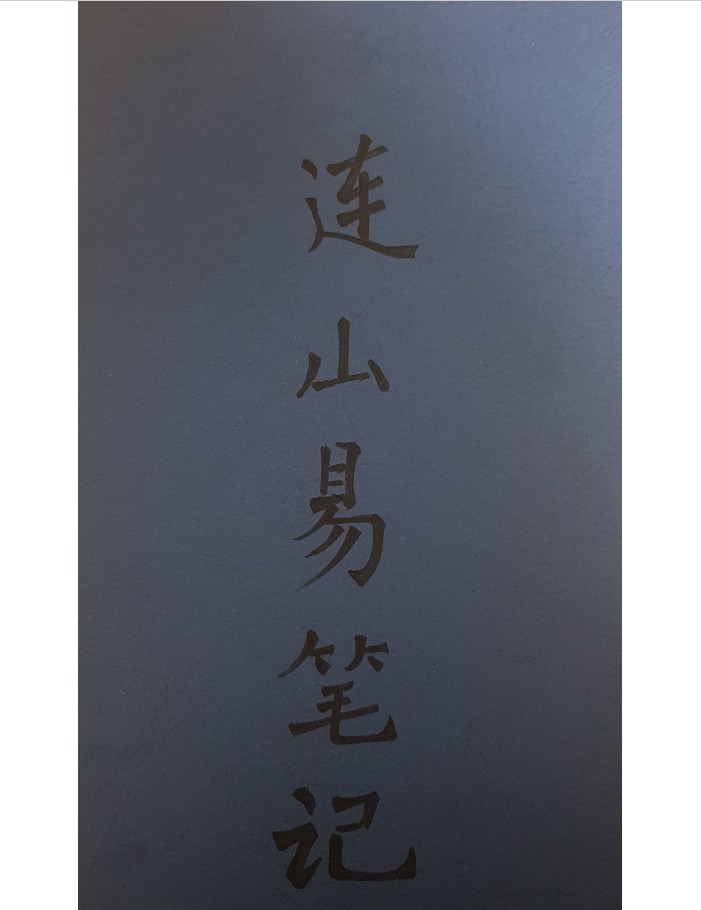 连山易笔记